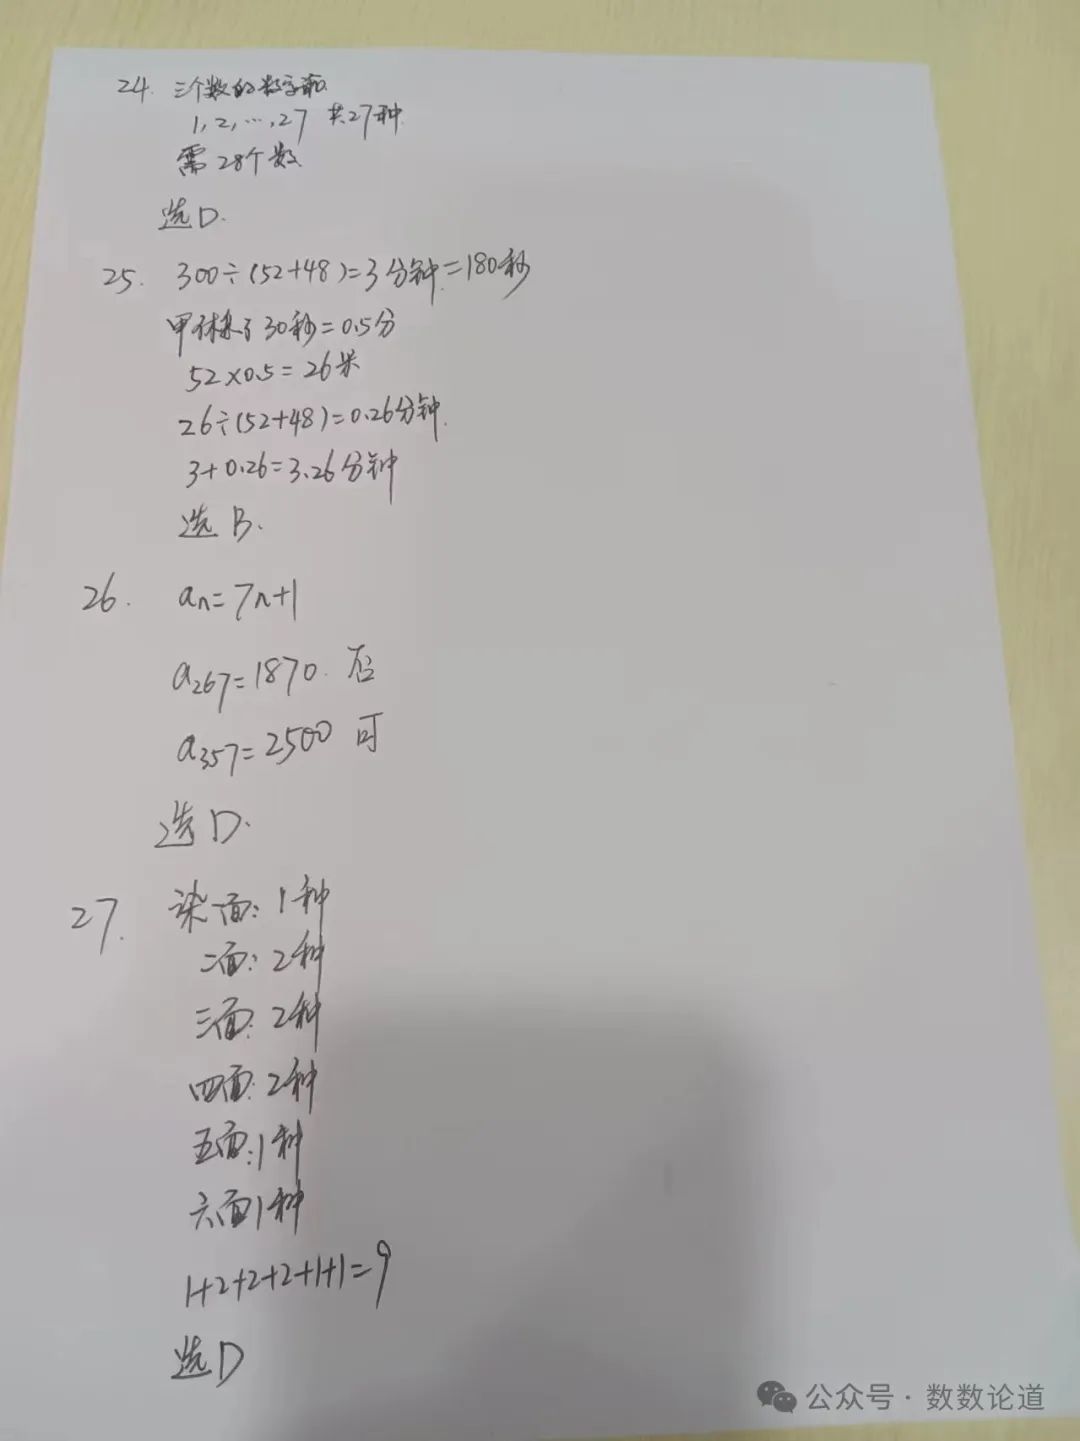 24. 三个数的数字和
1, 2, ⋯, 27 共27种
需28个数
选D.
25. 300÷(52+48)=3分钟=180秒
甲休息了30秒=0.5分
52×0.5=26米
26÷(52+48)=0.26分钟
3+0.26=3.26分钟
选B.
26. an=7n+1
a267=1870. 否
a357=2500 可
选D.
27. 染一面: 1种
二面: 2种
三面: 2种
四面: 2种
五面: 1种
六面1种
1+2+2+2+1+1=9
选D
公众号 · 数数论道